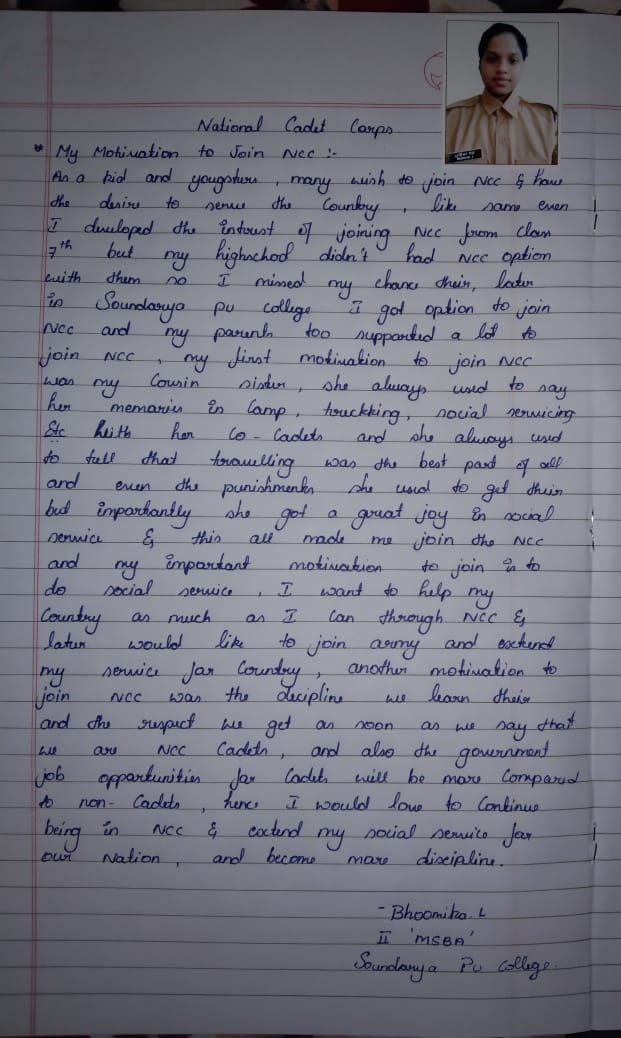 National Cadet Corps
* My Motivation to Join NCC :-
As a kid and yougsters, many wish to join NCC & have
the desire to serve the Country, like same even
I developed the intrust of joining NCC from class
7th but my highschool didn't had NCC option
with them so I missed my chance their, later
in Soundarya pu college I got option to join
NCC and my parents too supported a lot to
join NCC, my first motivation to join NCC
was my Cousin sister, she always used to say
her memories in Camp, truckking, social servicing
Etc with her Co-Cadets and she always used
to tell that travelling was the best part of all
and even the punishments she used to get their
but importantly she got a great joy in social
service & this all made me join the NCC
and my important motivation to join is to
do social service, I want to help my
Country as much as I Can through NCC &
later would like to join army and extend
my service for Country, another motivation to
join NCC was the decipline we learn their
and the respect we get as soon as we say that
we are NCC Cadets, and also the government
job opportunities for Cadets will be more Compared
to non-Cadets, hence I would love to Continue
being in NCC & extend my social service for
our Nation, and become more discipline.
- Bhoomika. L
II 'MSBA'
Soundarya Pu College.